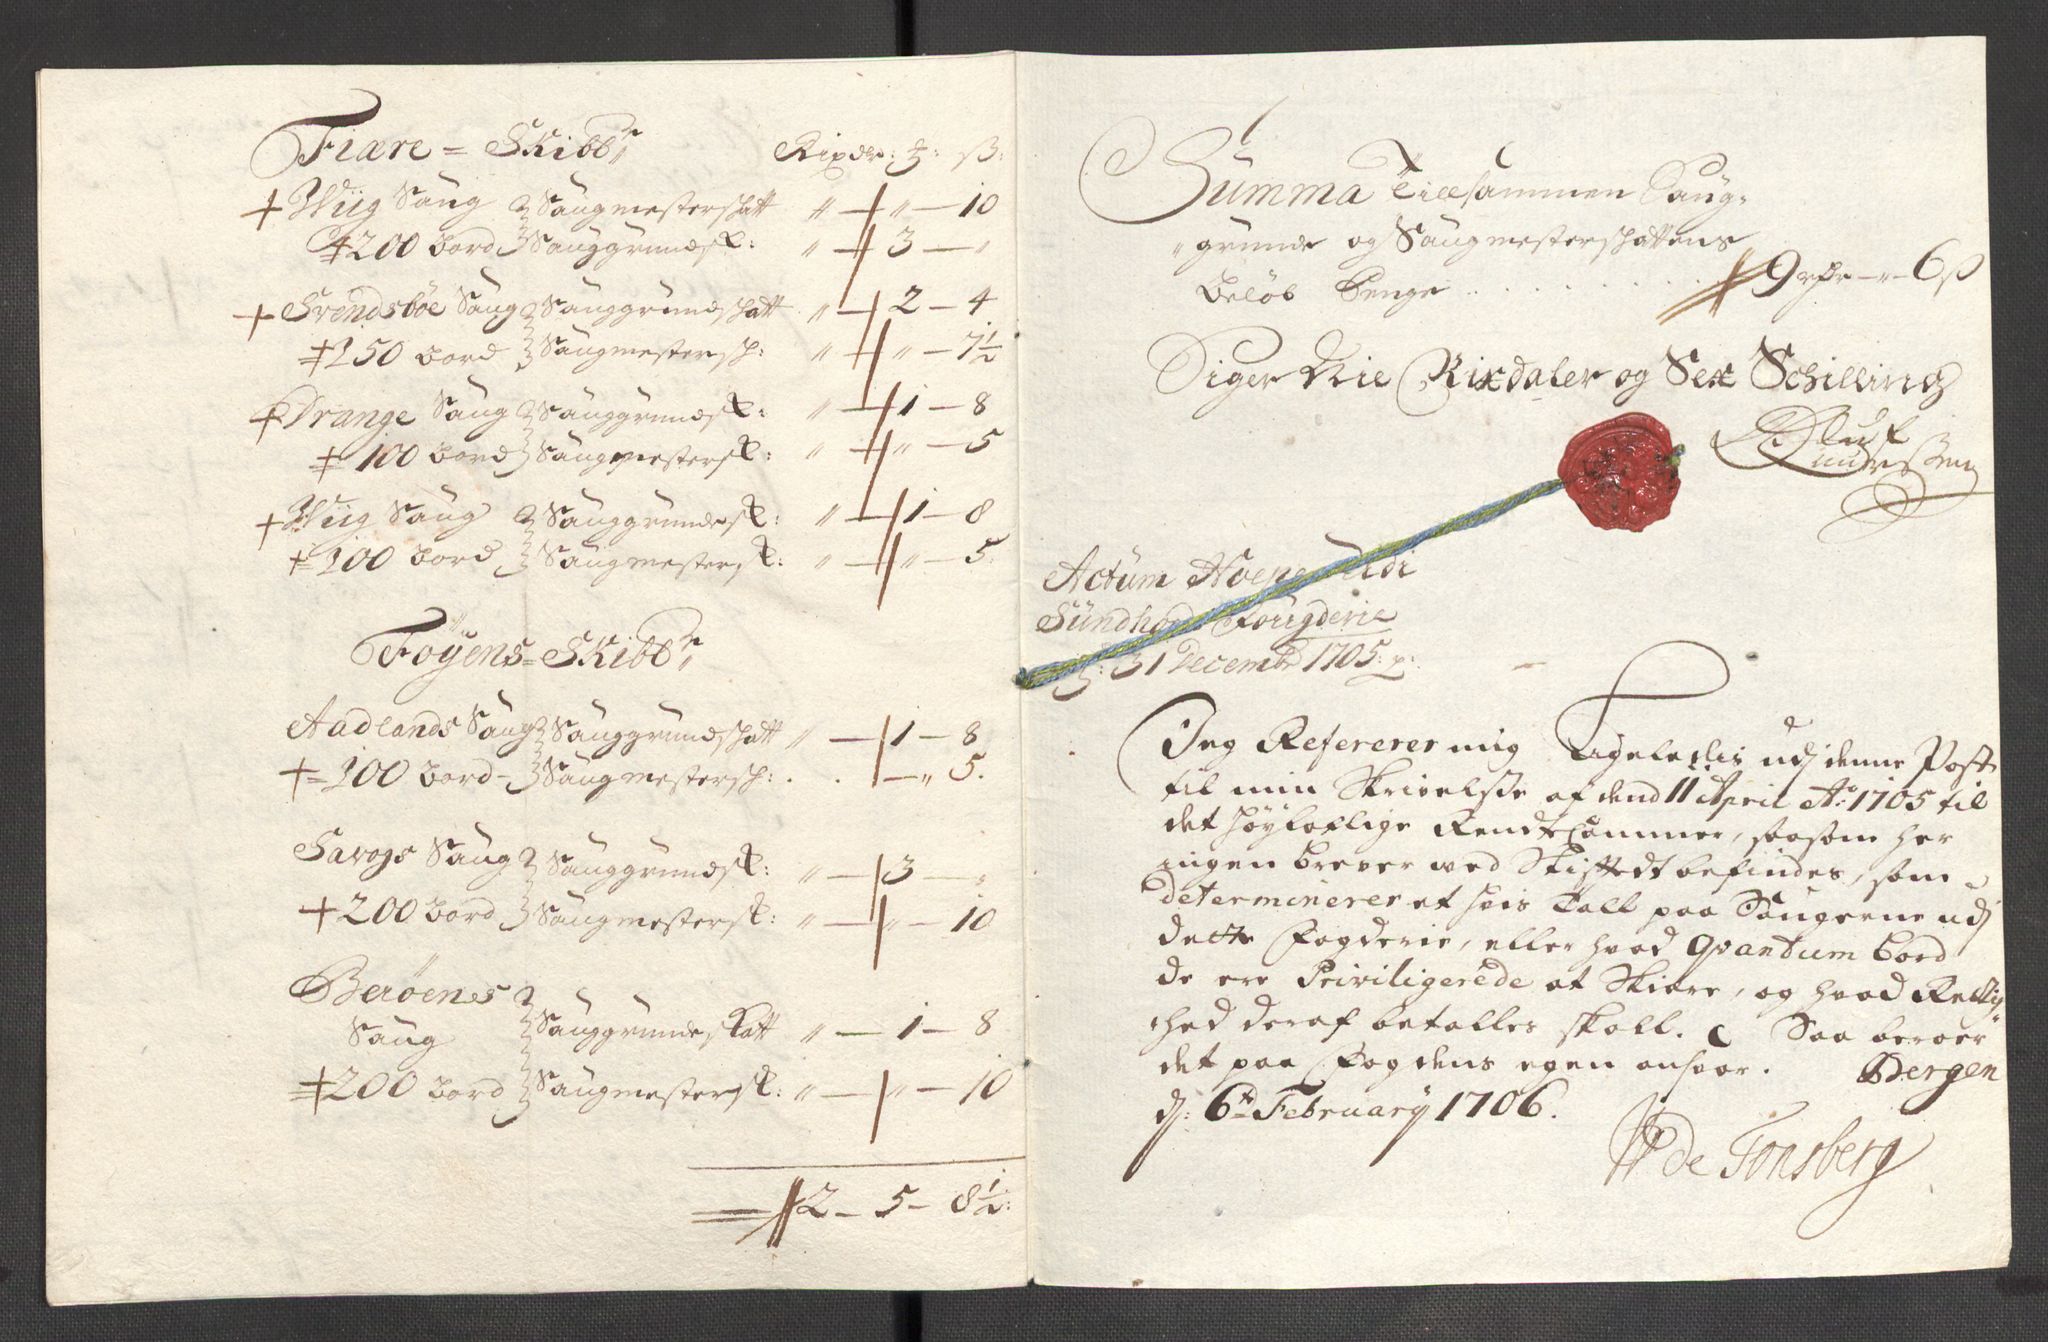 Fiære = Skibbr: Rixdr: ℥: ß:
Wiig Saug Saugmesterschatt " — " — 10
200 bord Sauggrundsk: " — 3 — "
Svendsböe Saug Sauggrundschatt " — 2 — 4
150 bord Saugmestersch: " — " — 7½
Drange Saug Sauggrundsk: " — 1 — 8
100 bord Saugmestersk: " — " — 5
Wiig Saug Sauggrundesk: " — 1 — 8
100 bord Saugmestersk: " — " — 5.
Föÿens = Skibbr:
Aadlands Saug Sauggrundschatt " — 1 — 8
100 bord Saugmestersch: . . — " 5.
Sauggrundsk: " — 3 — "
200 bord Saugmestersk: " — " — 10
Beröenes
Saug Sauggrundeskatt " — 1 — 8
200 bord Saugmestersk: " — " — 10
2 — 5 — 8½:
Summa Tillsammen Saug-
grunde og Saugmesterschattens
Beløb Penge . . . . . . . . 9 rdr — " — 6 ß
Siger Nie Rixdaler og Sex Schilling
Oluf
Knudssen
Actum Hoene udi
Sundhors Fougderie
d: 31 Decembr 1705: p:
Jeg Refererer mig Ligeledis udj denne Post
til min Skrivelsse af dend 11 April Ao: 1705 til
det høyloflige RendteCammer, saasom her
ingen brever ved Stiftedt befindes, som
determinerer et vis Tall paa Saugerne udj
dette Fogderie, eller hvad Qvantum bord
de ere Priviligerede at Skiære, og hvad Rettig
hed deraf betalles skall. Saa beroer
det paa Fogdens egen ansvar. Bergen
dj: 6te Februarij 1706.
WP de Tonsberg